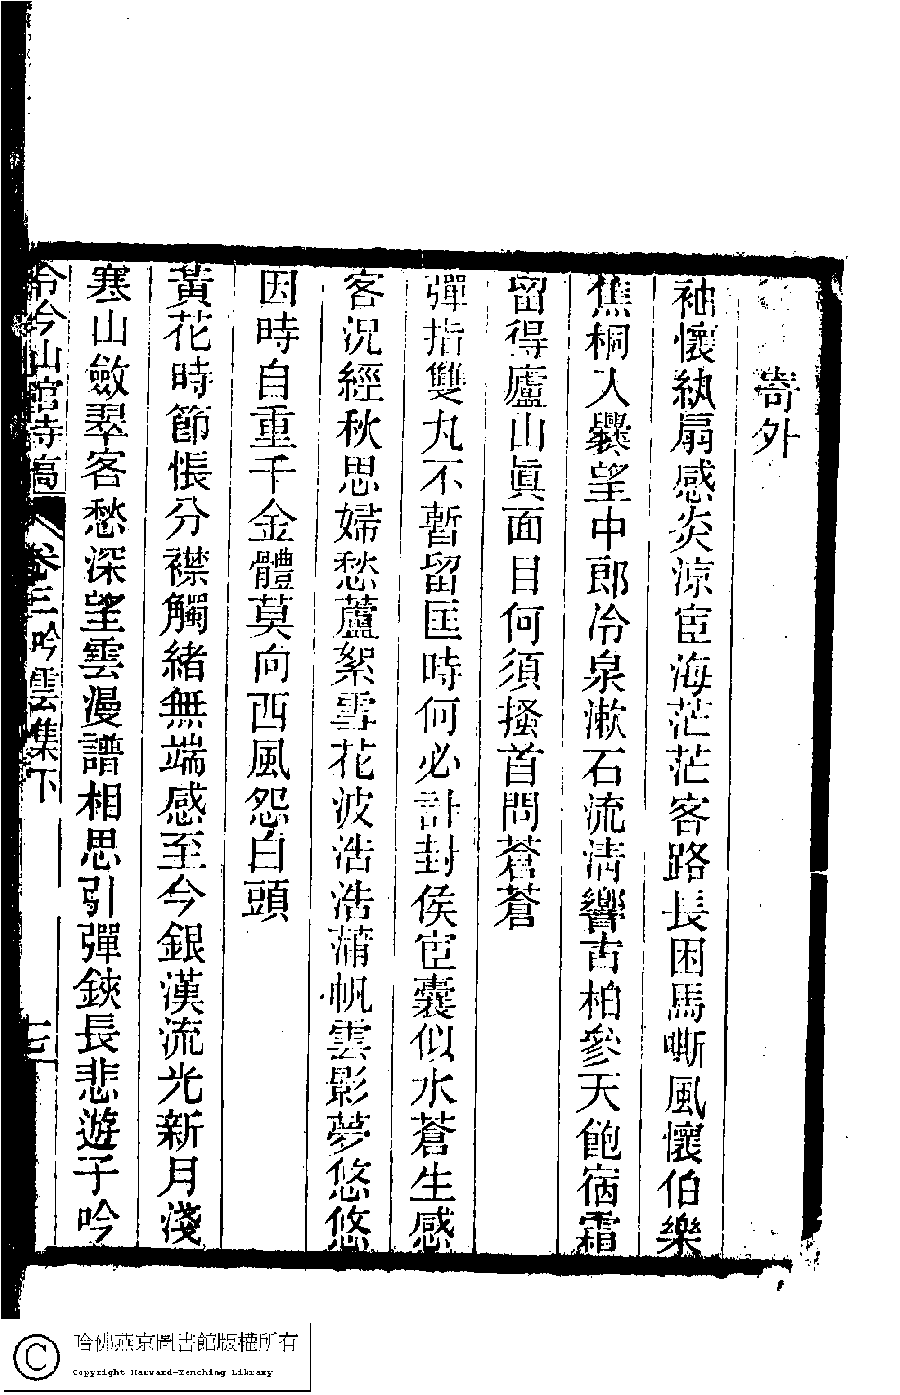 寄外
袖懷紈扇感炎涼宦海茫茫客路長困馬嘶風懷伯樂
焦桐入爨望中郎冷泉漱石流清響古柏參天飽宿霜
留得廬山眞面目何須搔首問蒼蒼
彈指雙丸不暫留匡時何必計封侯宦囊似水蒼生感
客況經秋思婦愁蘆絮雪花波浩浩蒲帆雲影夢悠悠
因時自重千金體莫向西風怨白頭
黃花時節悵分襟觸緒無端感至今銀漢流光新月淺
寒山斂翠客愁深望雲漫譜相思引彈鋏長悲遊子吟
泠泠山館詩稿 卷三吟雲集下 七
哈佛燕京圖書館版權所有
Copyright Harvard-Yenching Library